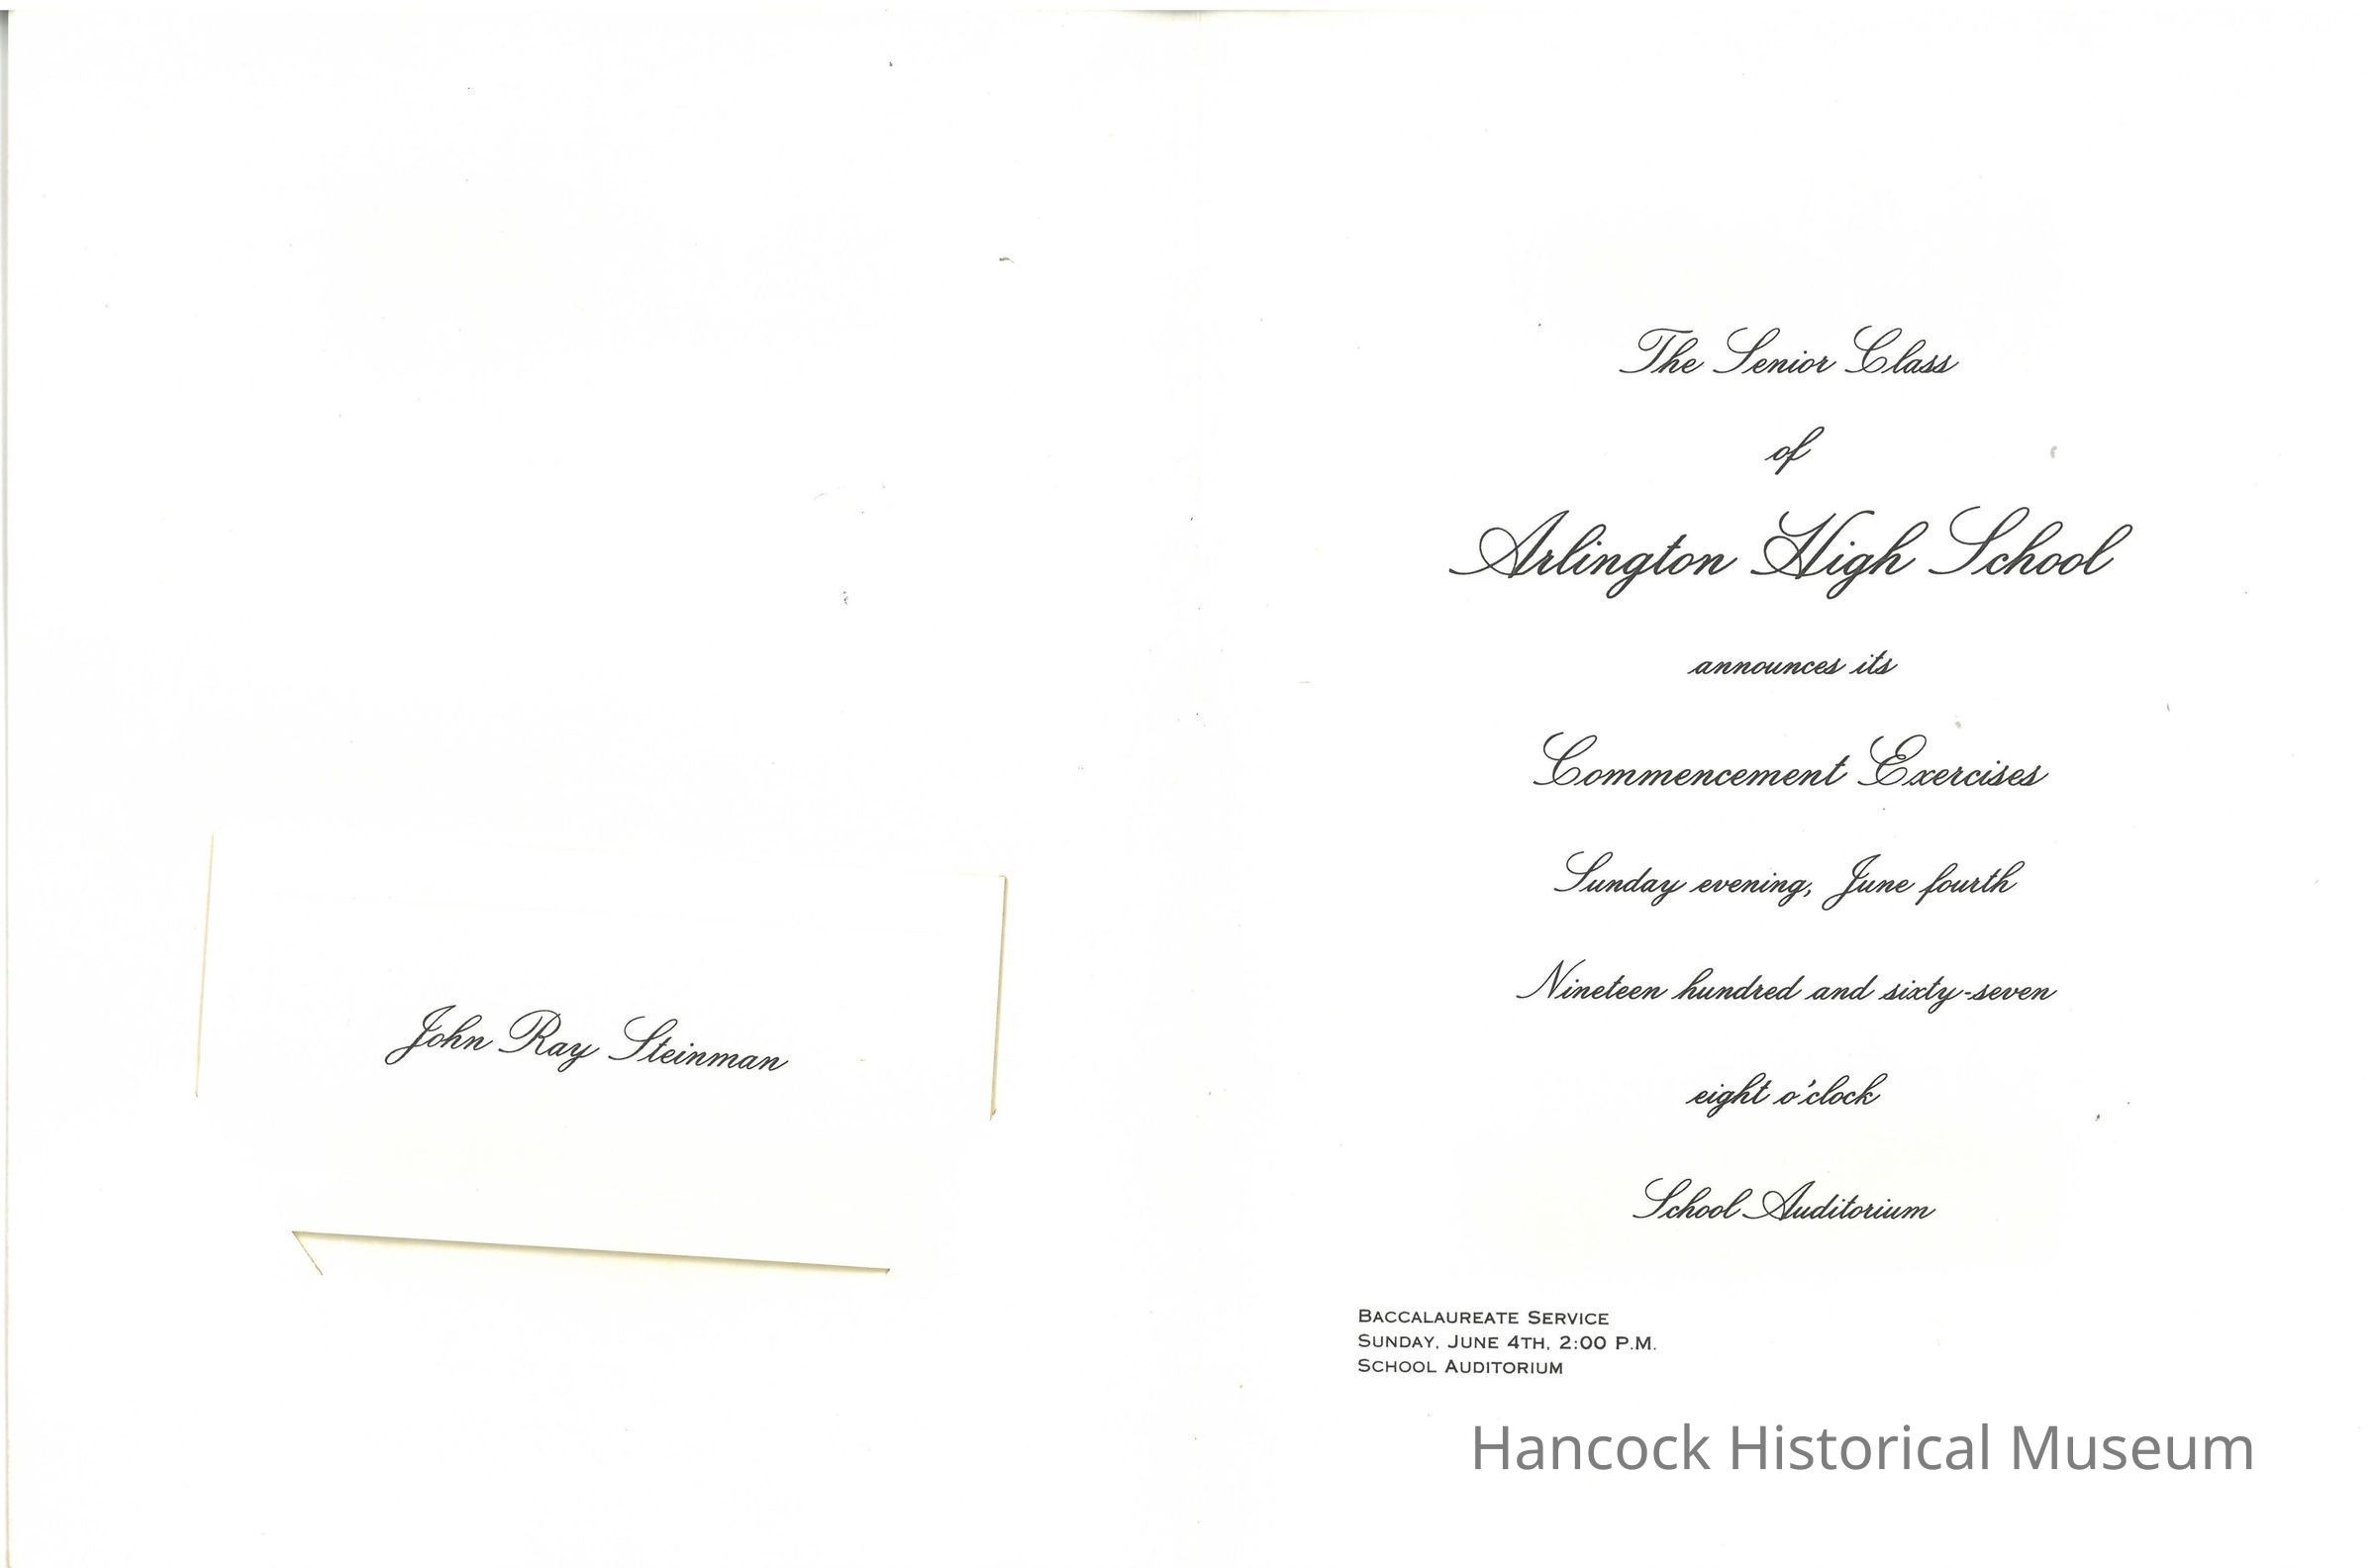 John Ray Steinman
The Senior Class
of
Arlington High School
announces its
Commencement Exercises
Sunday evening, June fourth
Nineteen hundred and sixty-seven
eight o'clock
School Auditorium
BACCALAUREATE SERVICE
SUNDAY, JUNE 4TH, 2:00 P.M.
SCHOOL AUDITORIUM
Hancock Historical Museum